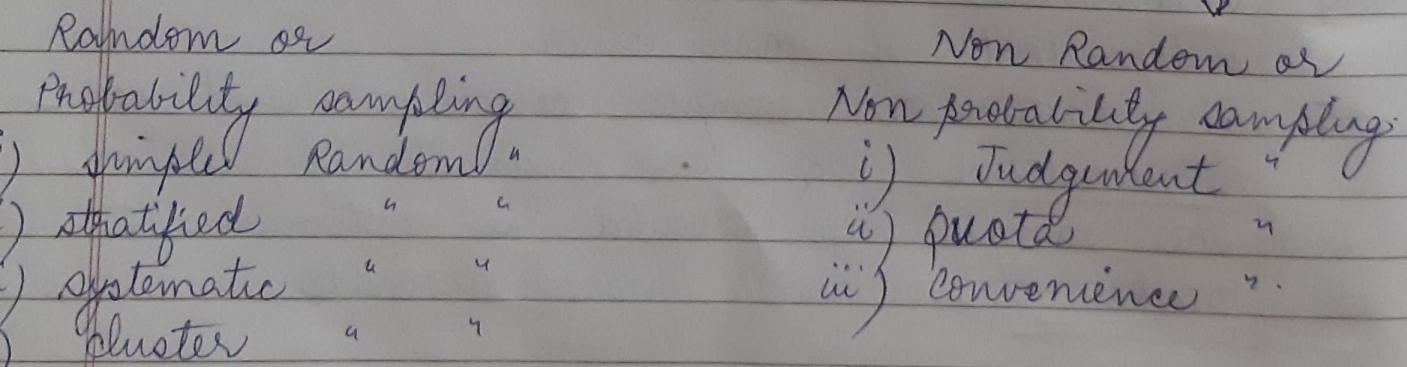 Random or
Probability sampling
) simple Random "
) stratified " "
) systematic " "
) cluster " "
Non Random or
Non probability sampling:
i) Judgement "
ii) Quota "
iii) convenience ".